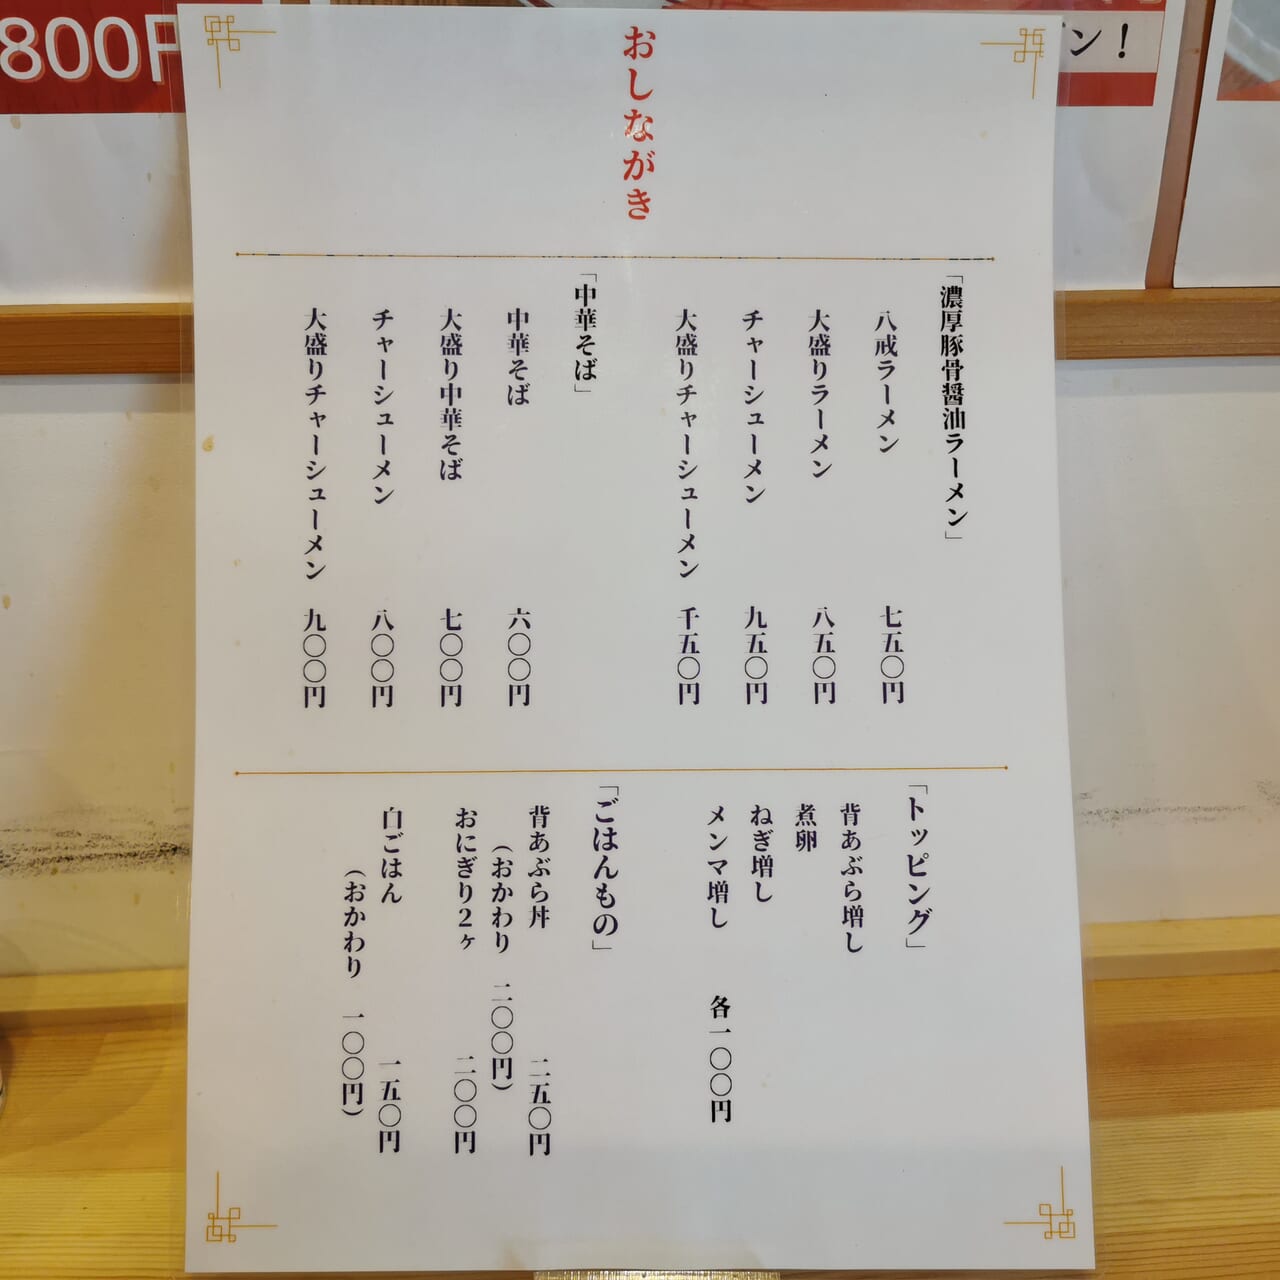 800F
ン！
おしながき
「濃厚豚骨醤油ラーメン」
八戒ラーメン 七五〇円
大盛りラーメン 八五〇円
チャーシューメン 九五〇円
大盛りチャーシューメン 千五〇円
「中華そば」
中華そば 六〇〇円
大盛り中華そば 七〇〇円
チャーシューメン 八〇〇円
大盛りチャーシューメン 九〇〇円
「トッピング」
背あぶら増し
煮卵
ねぎ増し
メンマ増し 各一〇〇円
「ごはんもの」
背あぶら丼 二五〇円
（おかわり 二〇〇円）
おにぎり２ヶ 二〇〇円
白ごはん 一五〇円
（おかわり 一〇〇円）